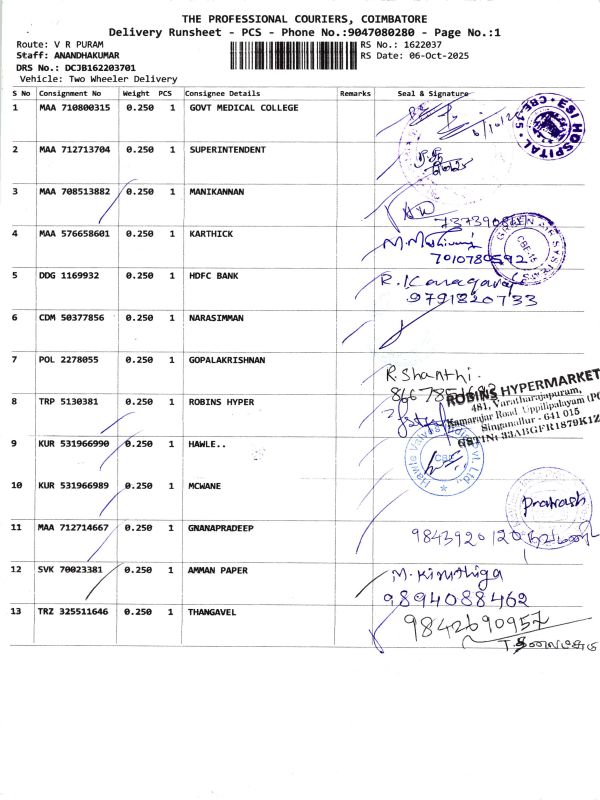 THE PROFESSIONAL COURIERS, COIMBATORE
Delivery Runsheet - PCS - Phone No.:9047080280 - Page No.:1
Route: V R PURAM
RS No.: 1622037
Staff: ANANDHAKUMAR
RS Date: 06-Oct-2025
DRS No.: DCJB162203701
Vehicle: Two Wheeler Delivery
S No Consignment No Weight PCS Consignee Details Remarks Seal & Signature
1 MAA 710800315 0.250 1 GOVT MEDICAL COLLEGE
ESI HOSPITAL CBE-15
2 MAA 712713704 0.250 1 SUPERINTENDENT
3 MAA 708513882 0.250 1 MANIKANNAN
4 MAA 576658601 0.250 1 KARTHICK
7010780592
5 DDG 1169932 0.250 1 HDFC BANK R. Kanagaraj
9791820733
6 CDM 50377856 0.250 1 NARASIMMAN
7 POL 2278055 0.250 1 GOPALAKRISHNAN R. Shanthi.
8 TRP 5130381 0.250 1 ROBINS HYPER
ROBINS HYPERMARKET
481, Varatharajapuram,
Kamarajar Road, Uppilipalayam (PO)
Singanallur - 641 015
GSTIN: 33ABGFR1879K1Z
9 KUR 531966990 0.250 1 HAWLE..
10 KUR 531966989 0.250 1 MCWANE
Prakash
11 MAA 712714667 0.250 1 GNANAPRADEEP 9843920120
12 SVK 70023381 0.250 1 AMMAN PAPER M. Kiruthiga
9894088462
13 TRZ 325511646 0.250 1 THANGAVEL 9842690957